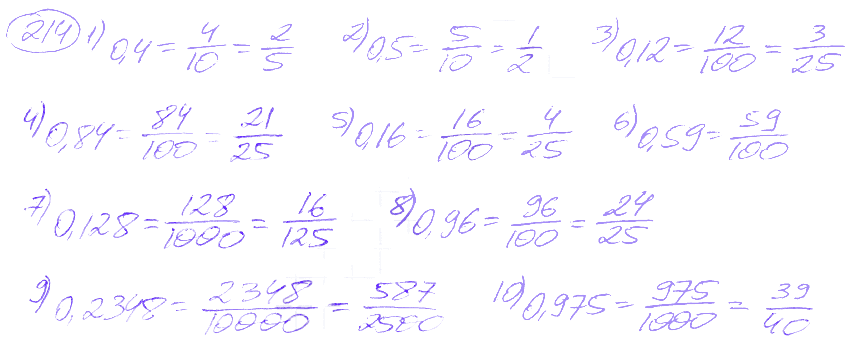 214 1) 0,4 = 4/10 = 2/5 2) 0,5 = 5/10 = 1/2 3) 0,12 = 12/100 = 3/25
4) 0,84 = 84/100 = 21/25 5) 0,16 = 16/100 = 4/25 6) 0,59 = 59/100
7) 0,128 = 128/1000 = 16/125 8) 0,96 = 96/100 = 24/25
9) 0,2348 = 2348/10000 = 587/2500 10) 0,975 = 975/1000 = 39/40